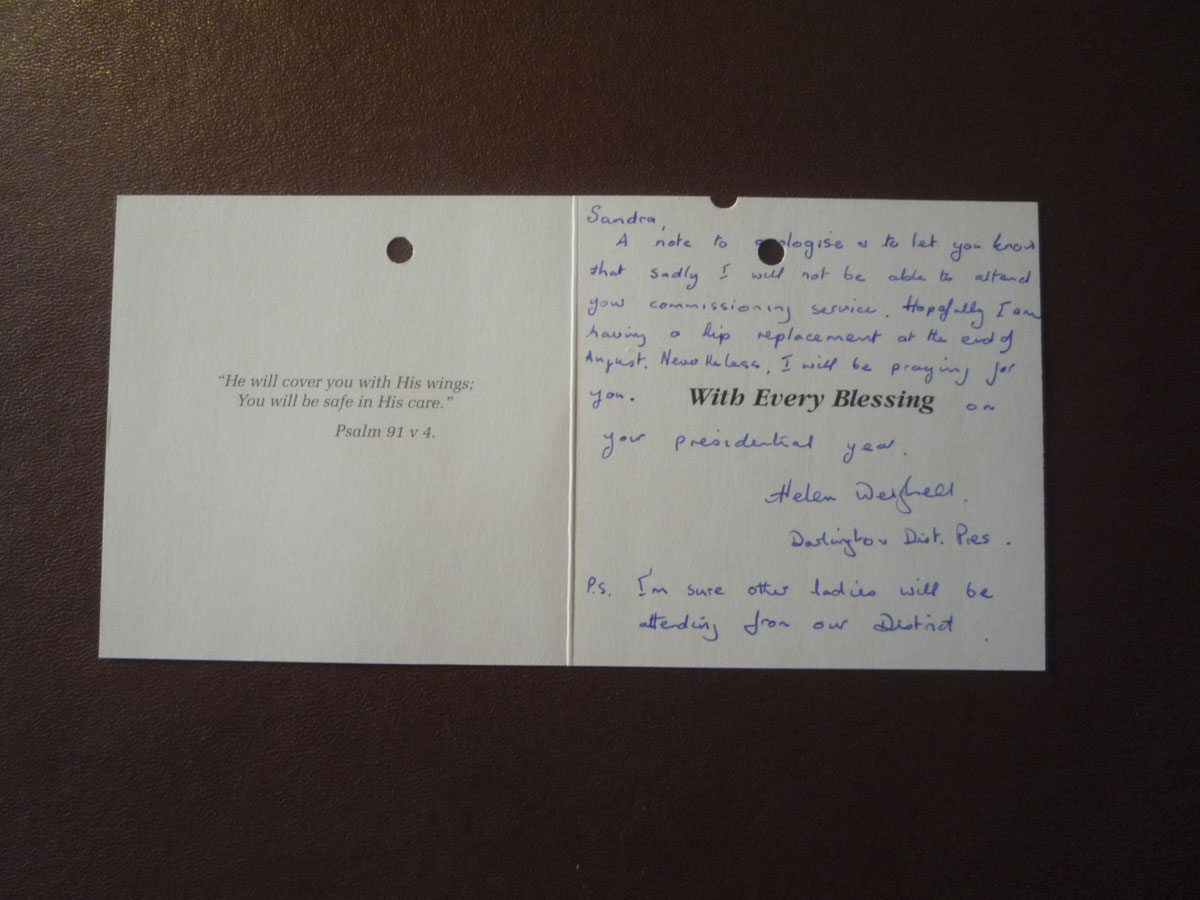 “He will cover you with His wings;
You will be safe in His care.”
Psalm 91 v 4.
Sandra,
A note to apologise & to let you know
that sadly I will not be able to attend
your commissioning service. Hopefully I am
having a hip replacement at the end of
August. Nevertheless, I will be praying for
you. With Every Blessing on
your presidential year.
Helen Weighell.
Darlington Dist. Pres.
P.S. I'm sure other ladies will be
attending from our District.